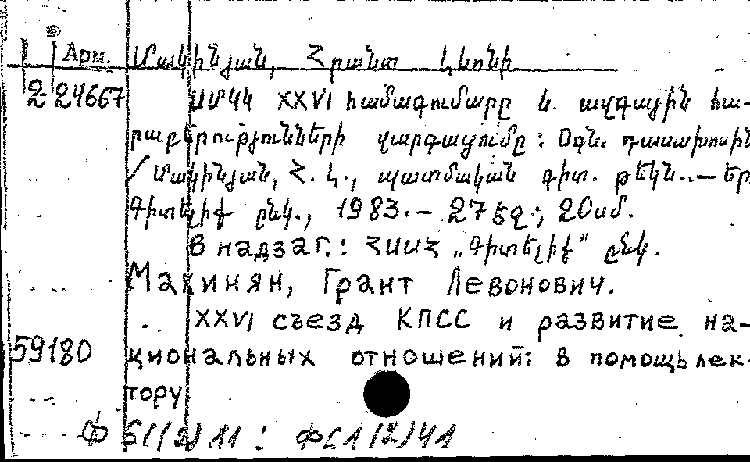 Арм. Մակինյան, Հրանտ Լևոնի
2 24667 ՍՄԿԿ XXVI համագումարը և ազգային հա-
րաբերությունների զարգացումը: Օգն. դասախոսին
/ Մակինյան, Հ. Լ., պատմական գիտ. թեկն. — Եր.
Գիտելիք ընկ., 1983. — 27 էջ; 20սմ.
В надзаг.: ՀՍՍՀ „Գիտելիք" ընկ.
Макинян, Грант Левонович.
XXVI съезд КПСС и развитие на-
59180 циональных отношений: в помощь лек-
тору